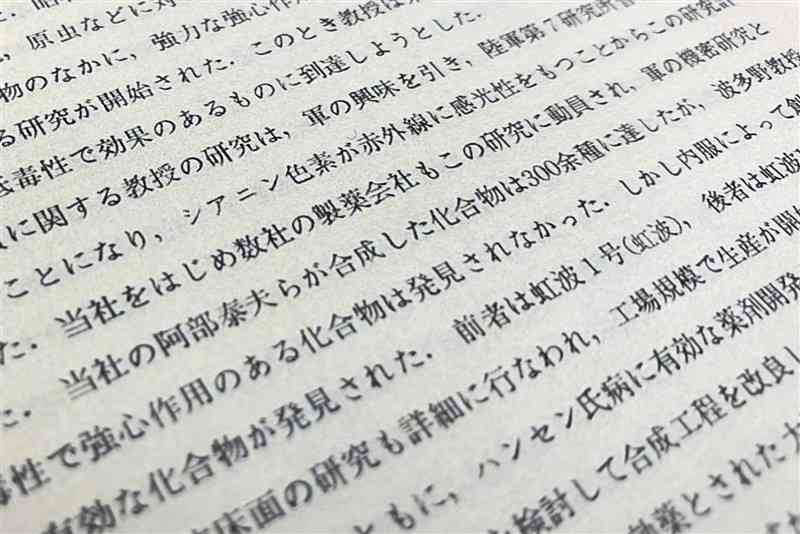 ，原虫などに対
物のなかに，強力な強心作用
る研究が開始された．このとき教授は
低毒性で効果のあるものに到達しようとした．
に関する教授の研究は，軍の興味を引き，陸軍第7研究所
ことになり，シアニン色素が赤外線に感光性をもつことからこの研究
た．当社をはじめ数社の製薬会社もこの研究に動員され，軍の機密研究と
た．当社の阿部泰夫らが合成した化合物は300余種に達したが，波多野教授
毒性で強心作用のある化合物は発見されなかった．しかし内服によって
有効な化合物が発見された．前者は虹波1号(虹波)，後者は虹波
床面の研究も詳細に行なわれ，工場規模で生産が開
ともに，ハンセン氏病に有効な薬剤開発
検討して合成工程を改良し
効薬とされた